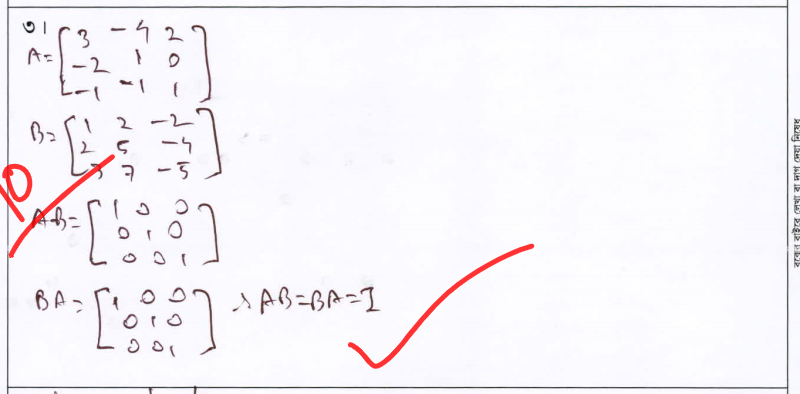 ৩।
A = [ 3 -4 2
-2 1 0
-1 -1 1 ]
B = [ 1 2 -2
2 5 -4
3 7 -5 ]
10
AB = [ 1 0 0
0 1 0
0 0 1 ]
BA = [ 1 0 0
0 1 0
0 0 1 ] ∴ AB = BA = I
বক্সের বাইরে লেখা বা দাগ দেয়া নিষেধ